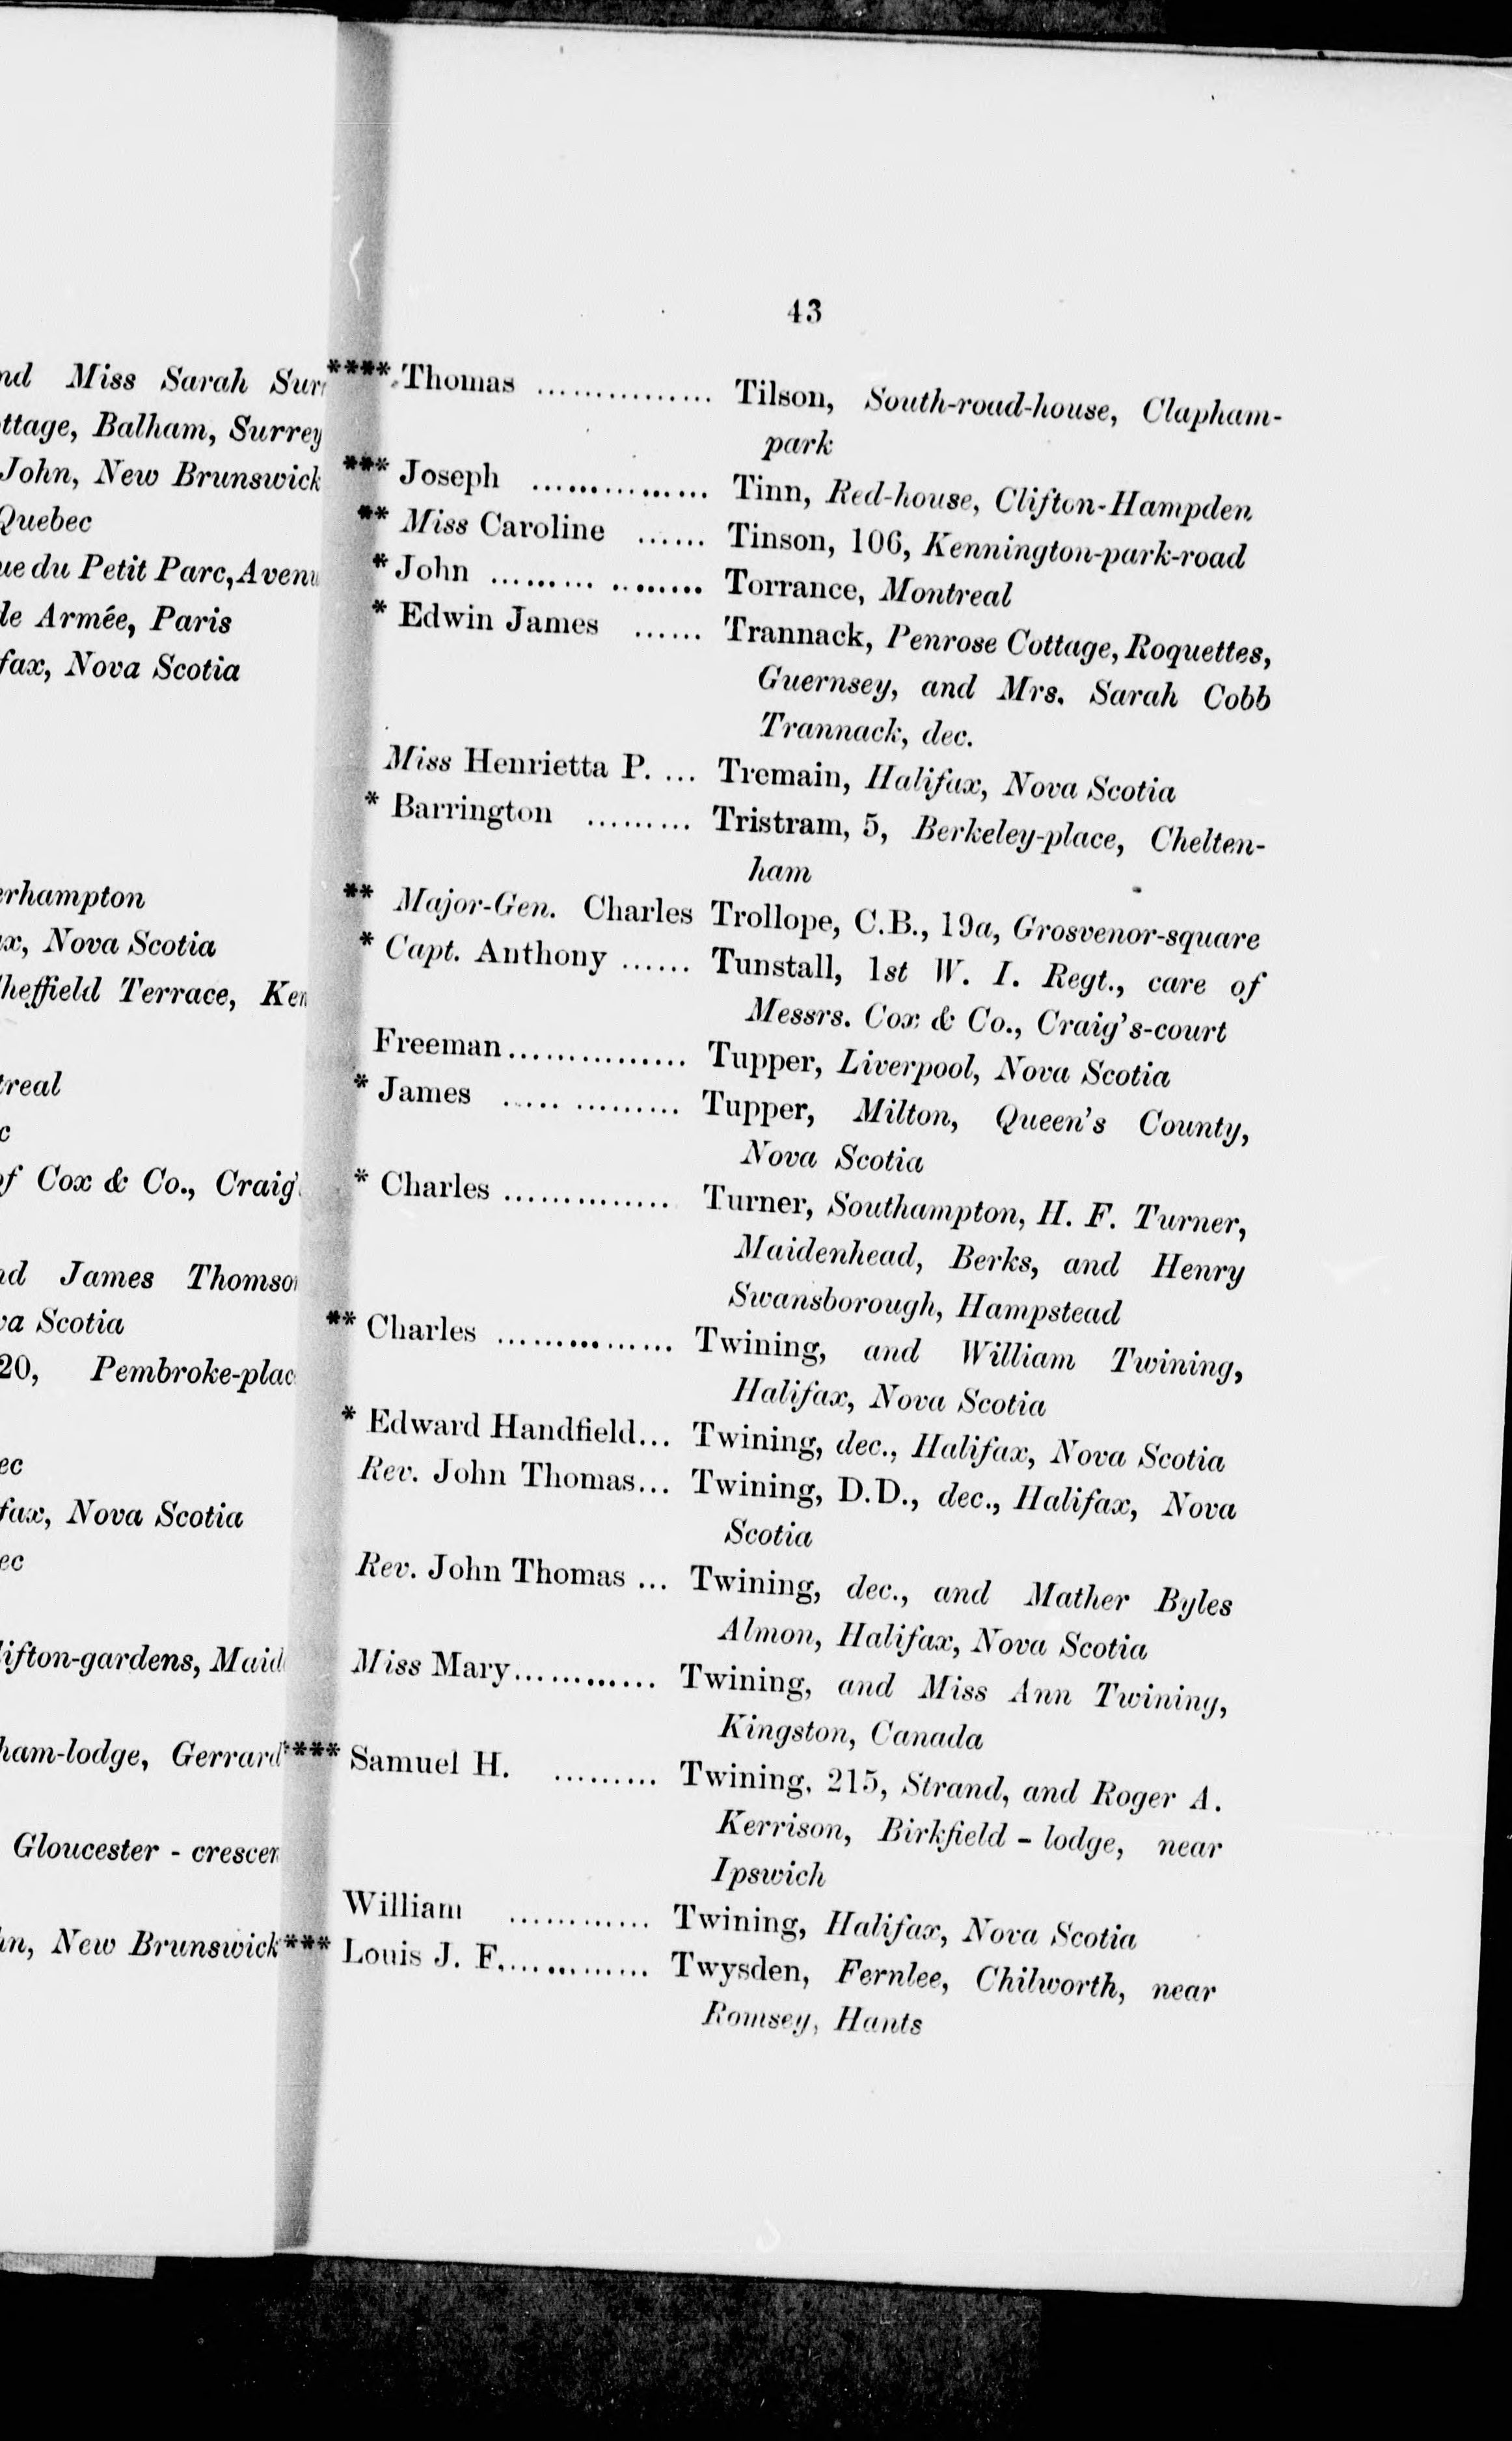 nd Miss Sarah
ttage, Balham, Surrey
John, New Brunswick
Quebec
ue du Petit Parc,
de Armée, Paris
fax, Nova Scotia
erhampton
ax, Nova Scotia
heffield Terrace,
treal
c
of Cox & Co., Craig
nd James
va Scotia
20, Pembroke-plac
ec
fax, Nova Scotia
ec
lifton-gardens, Maid
ham-lodge, Gerrard
Gloucester - crescen
hn, New Brunswick
43
**** Thomas ............... Tilson, South-road-house, Clapham-
park
*** Joseph ............... Tinn, Red-house, Clifton-Hampden
** Miss Caroline ...... Tinson, 106, Kennington-park-road
* John ......... ........ Torrance, Montreal
* Edwin James ...... Trannack, Penrose Cottage, Roquettes,
Guernsey, and Mrs. Sarah Cobb
Trannack, dec.
Miss Henrietta P. ... Tremain, Halifax, Nova Scotia
* Barrington ......... Tristram, 5, Berkeley-place, Chelten-
ham
** Major-Gen. Charles Trollope, C.B., 19a, Grosvenor-square
* Capt. Anthony ...... Tunstall, 1st W. I. Regt., care of
Messrs. Cox & Co., Craig's-court
Freeman............... Tupper, Liverpool, Nova Scotia
* James ..... ......... Tupper, Milton, Queen's County,
Nova Scotia
* Charles .............. Turner, Southampton, H. F. Turner,
Maidenhead, Berks, and Henry
Swansborough, Hampstead
** Charles ............... Twining, and William Twining,
Halifax, Nova Scotia
* Edward Handfield... Twining, dec., Halifax, Nova Scotia
Rev. John Thomas... Twining, D.D., dec., Halifax, Nova
Scotia
Rev. John Thomas ... Twining, dec., and Mather Byles
Almon, Halifax, Nova Scotia
Miss Mary............ Twining, and Miss Ann Twining,
Kingston, Canada
**** Samuel H. ......... Twining, 215, Strand, and Roger A.
Kerrison, Birkfield - lodge, near
Ipswich
William ............ Twining, Halifax, Nova Scotia
*** Louis J. F............. Twysden, Fernlee, Chilworth, near
Romsey, Hants